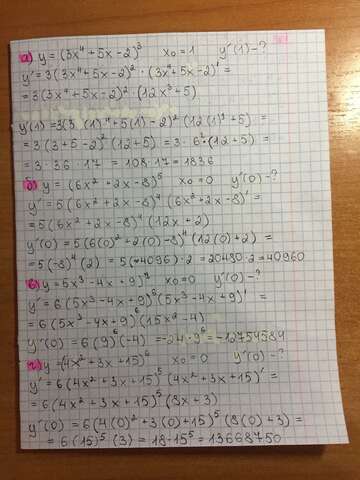 а) y = (3x⁴+5x-2)³ x₀=1 y'(1)-?
y' = 3(3x⁴+5x-2)² · (3x⁴+5x-2)' =
= 3(3x⁴+5x-2)² · (12x³+5)
y'(1) = 3(3·(1)⁴+5(1)-2)² (12(1)³+5) =
= 3(3+5-2)² (12+5) = 3·6²·(12+5) =
= 3·36·17 = 108·17 = 1836
б) y = (6x²+2x-8)⁵ x₀=0 y'(0)-?
y' = 5(6x²+2x-8)⁴ (6x²+2x-8)' =
= 5(6x²+2x-8)⁴ (12x+2)
y'(0) = 5(6(0)²+2(0)-8)⁴ (12(0)+2) =
= 5(-8)⁴(2) = 5(4096)·2 = 20480·2 = 40960
в) y = 5x³-4x+9)⁷ x₀=0 y'(0)-?
y' = 6(5x³-4x+9)⁶ (5x³-4x+9)' =
= 6(5x³-4x+9)⁶ (15x²-4)
y'(0) = 6(9)⁶(-4) = -24·9⁶ = -12754584
г) y = (4x²+3x+15)⁶ x₀=0 y'(0)-?
y' = 6(4x²+3x+15)⁵ (4x²+3x+15)' =
= 6(4x²+3x+15)⁵ (8x+3)
y'(0) = 6(4(0)²+3(0)+15)⁵ (8(0)+3) =
= 6(15)⁵(3) = 18·15⁵ = 13668750